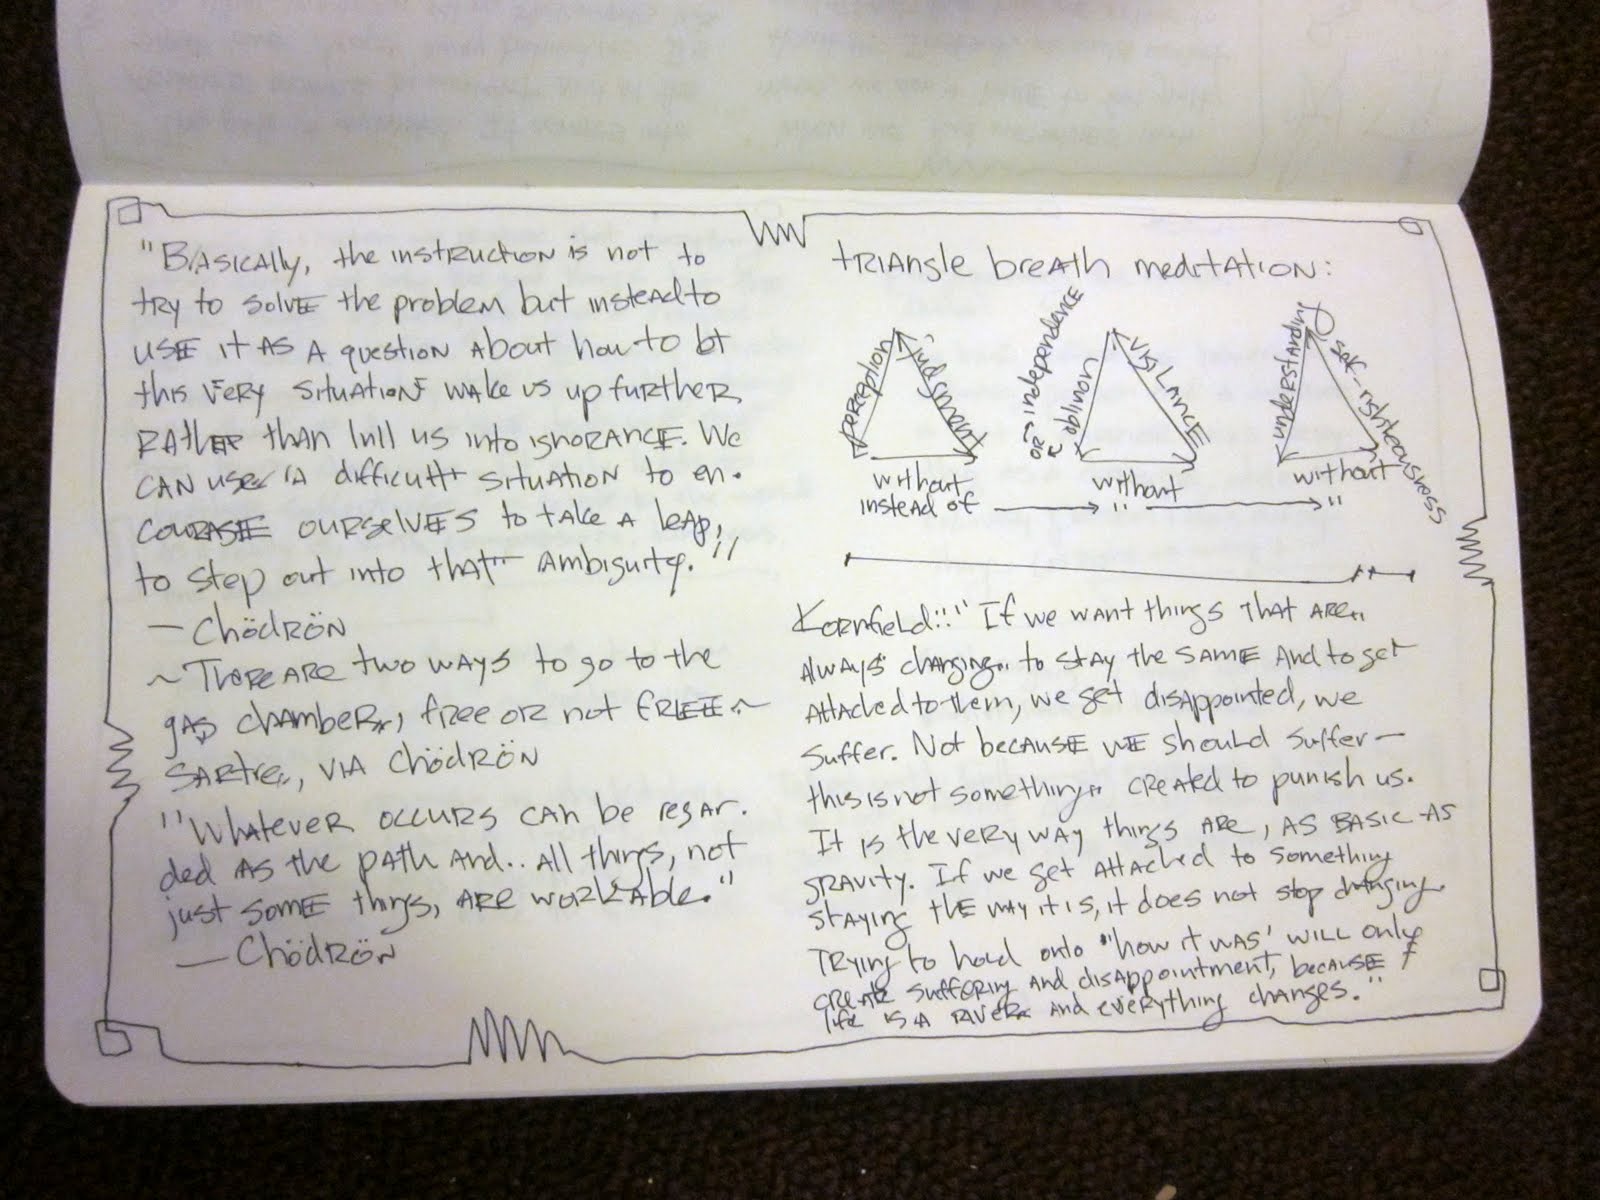 "Basically, the instruction is not to
try to solve the problem but instead to
use it as a question about how to let
this very situation wake us up further
rather than lull us into ignorance. We
can use a difficult situation to en-
courage ourselves to take a leap,
to step out into that ambiguity."
— Chödrön
~ There are two ways to go to the
gas chamber, free or not free ~
Sartre, via Chödrön
"Whatever occurs can be regar-
ded as the path and.. all things, not
just some things, are workable."
— Chödrön
triangle breath meditation:
perception
judgment
without
instead of
or independence
oblivion
vigilance
without
"
understanding
self-righteousness
without
"
Kornfield:: "If we want things that are
always changing.. to stay the same and to get
attached to them, we get disappointed, we
suffer. Not because we should suffer —
this is not something.. created to punish us.
It is the very way things are, as basic as
gravity. If we get attached to something
staying the way it is, it does not stop changing.
Trying to hold onto 'how it was' will only
create suffering and disappointment, because
life is a river and everything changes."